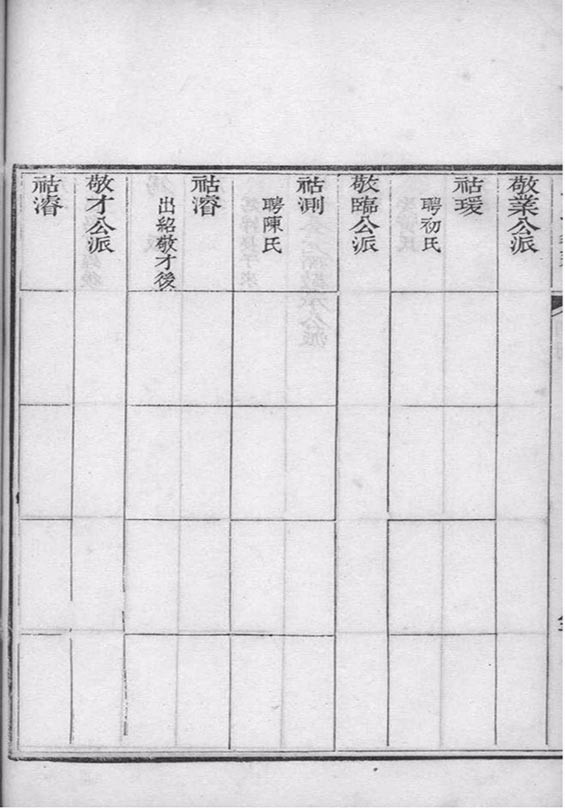 敬業公派
祜瑗
聘初氏
敬臨公派
祜測
聘陳氏
祜濬
出紹敬才後
敬才公派
祜濬